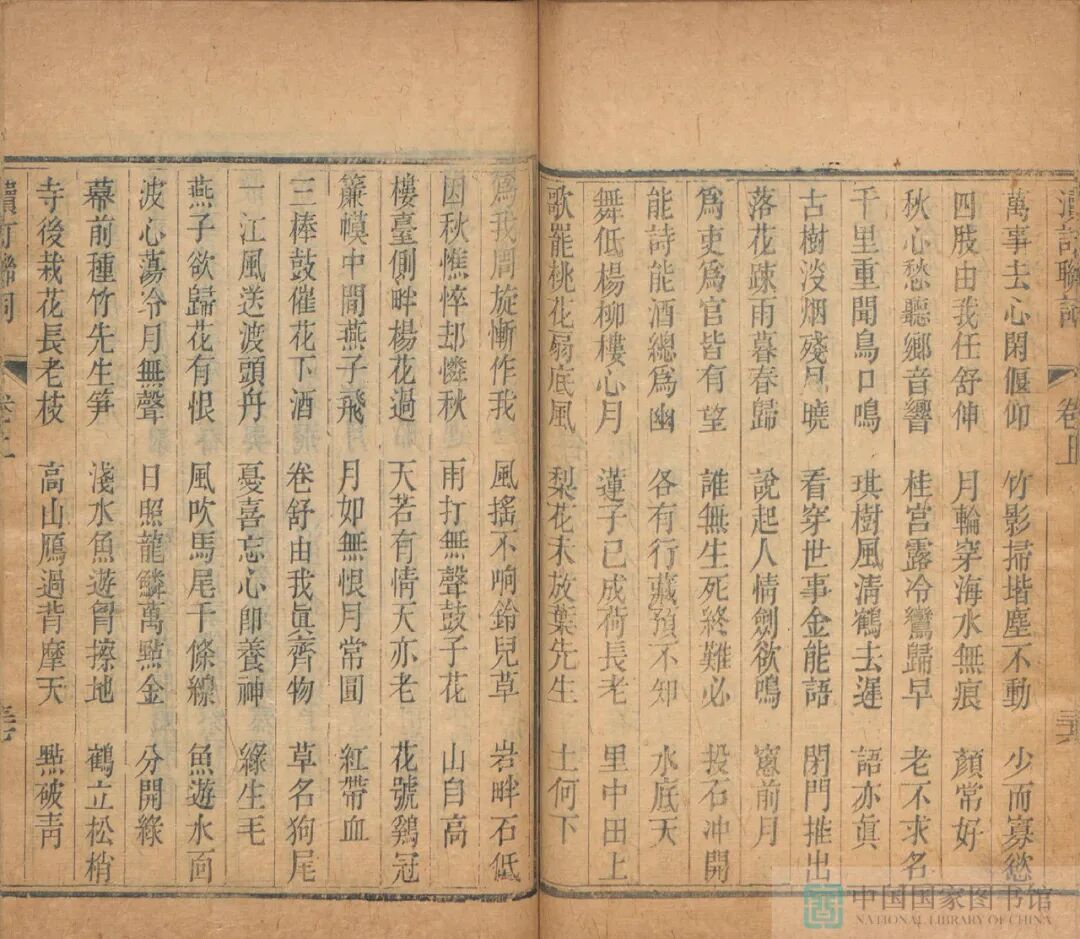 卷上
萬事去心閑偃仰 竹影掃堦塵不動 少而寡慾
四肢由我任舒伸 月輪穿海水無痕 顏常好
秋心愁聽鄉音響 桂宮露冷鸞歸早 老不求名
千里重聞鳥口鳴 琪樹風清鶴去遲 語亦眞
古樹淡烟殘月曉 看穿世事金能語 閉門推出
落花疎雨暮春歸 說起人情劍欲鳴 窻前月
為吏為官皆有望 誰無生死終難必 投石冲開
能詩能酒總為幽 各有行藏預不知 水底天
舞低楊柳樓心月 蓮子已成荷長老 里中田上
歌罷桃花扇底風 梨花未放葉先生 土何下
為我周旋慚作我 風搖不响鈴兒草 岩畔石低
因秋憔悴却憐秋 雨打無聲鼓子花 山自高
樓臺側畔楊花過 天若有情天亦老 花號鷄冠
簾幙中間燕子飛 月如無恨月常圓 紅帶血
三棒鼓催花下酒 卷舒由我眞齊物 草名狗尾
一江風送渡頭舟 憂喜忘心卽養神 綠生毛
燕子欲歸花有恨 風吹馬尾千條線 魚遊水面
波心蕩冷月無聲 日照龍鱗萬點金 分開綠
幕前種竹先生笋 淺水魚遊胷擦地 鶴立松梢
寺後栽花長老枝 高山鴈過背摩天 點破靑
中国国家图书馆
NATIONAL LIBRARY OF CHINA